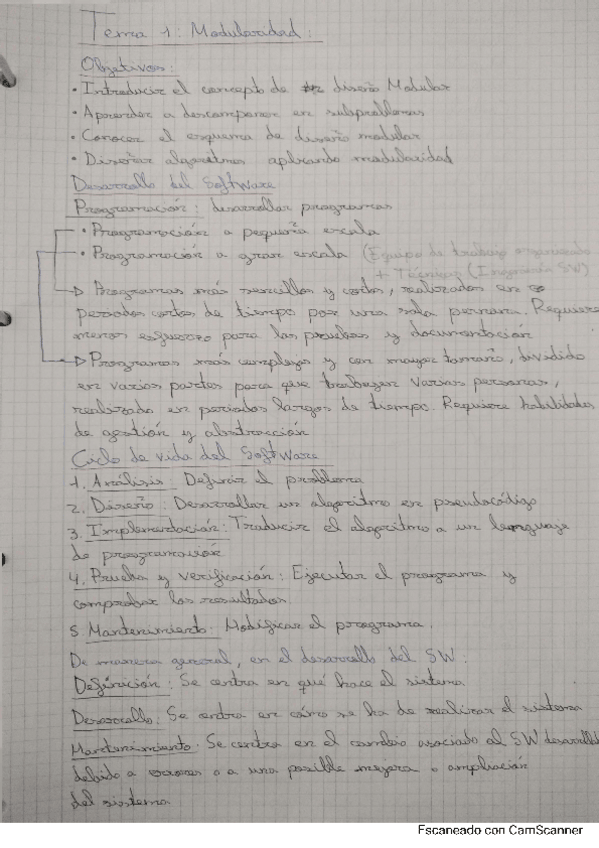 Tema 1: Modularidad:
Objetivos:
· Introducir el concepto de diseño Modular
· Aprender a descomponer en subproblemas
· Conocer el esquema de diseño modular
· Diseñar algoritmos aplicando modularidad
Desarrollo del Software
Programación: desarrollar programas
· Programación a pequeña escala
· Programación a gran escala (Equipo de trabajo organizado
+ Técnicas (Ingeniería SW)
▷ Programas más sencillos y cortos, realizados en
periodos cortos de tiempo por una sola persona. Requiere
menos esfuerzo para las pruebas y documentación
▷ Programas más complejos y con mayor tamaño, dividido
en varias partes para que trabajen varias personas,
realizado en periodos largos de tiempo. Requiere habilidades
de gestión y abstracción
Ciclo de vida del Software
1. Análisis: Definir el problema
2. Diseño: Desarrollar un algoritmo en pseudocódigo
3. Implementación: Traducir el algoritmo a un lenguaje
de programación
4. Prueba y verificación: Ejecutar el programa y
comprobar los resultados.
5. Mantenimiento: Modificar el programa.
De manera general, en el desarrollo del SW:
Definición: Se centra en qué hace el sistema
Desarrollo: Se centra en cómo se ha de realizar el sistema
Mantenimiento: Se centra en el cambio asociado al SW
debido a errores o a una posible mejora o ampliación
del sistema
Escaneado con CamScanner